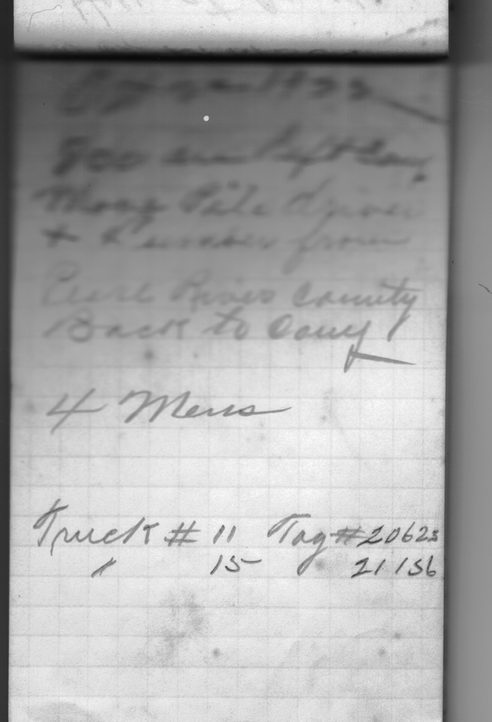 8 00 am Left Camp
Move Pile driver
+ Lumber from
Pearl River County
Back to Camp
4 Mens
Truck # 11 Tag # 20623
" 15 21156